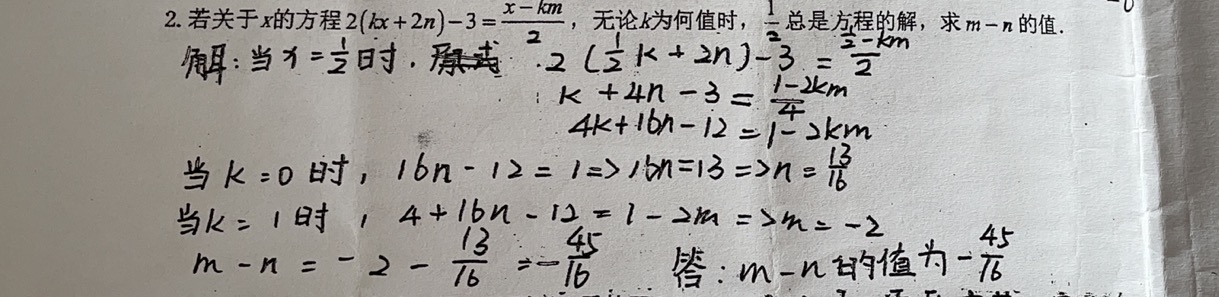 2. 若关于x的方程2(kx+2n)-3=\frac{x-km}{2}，无论k为何值时，\frac{1}{2}总是方程的解，求m-n的值.
解:当x=\frac{1}{2}时. 2(\frac{1}{2}k+2n)-3=\frac{\frac{1}{2}-km}{2}
k+4n-3=\frac{1-2km}{4}
4k+16n-12=1-2km
当k=0时，16n-12=1=>16n=13=>n=\frac{13}{16}
当k=1时，4+16n-12=1-2m=>m=-2
m-n=-2-\frac{13}{16}=-\frac{45}{16} 答:m-n的值为-\frac{45}{16}